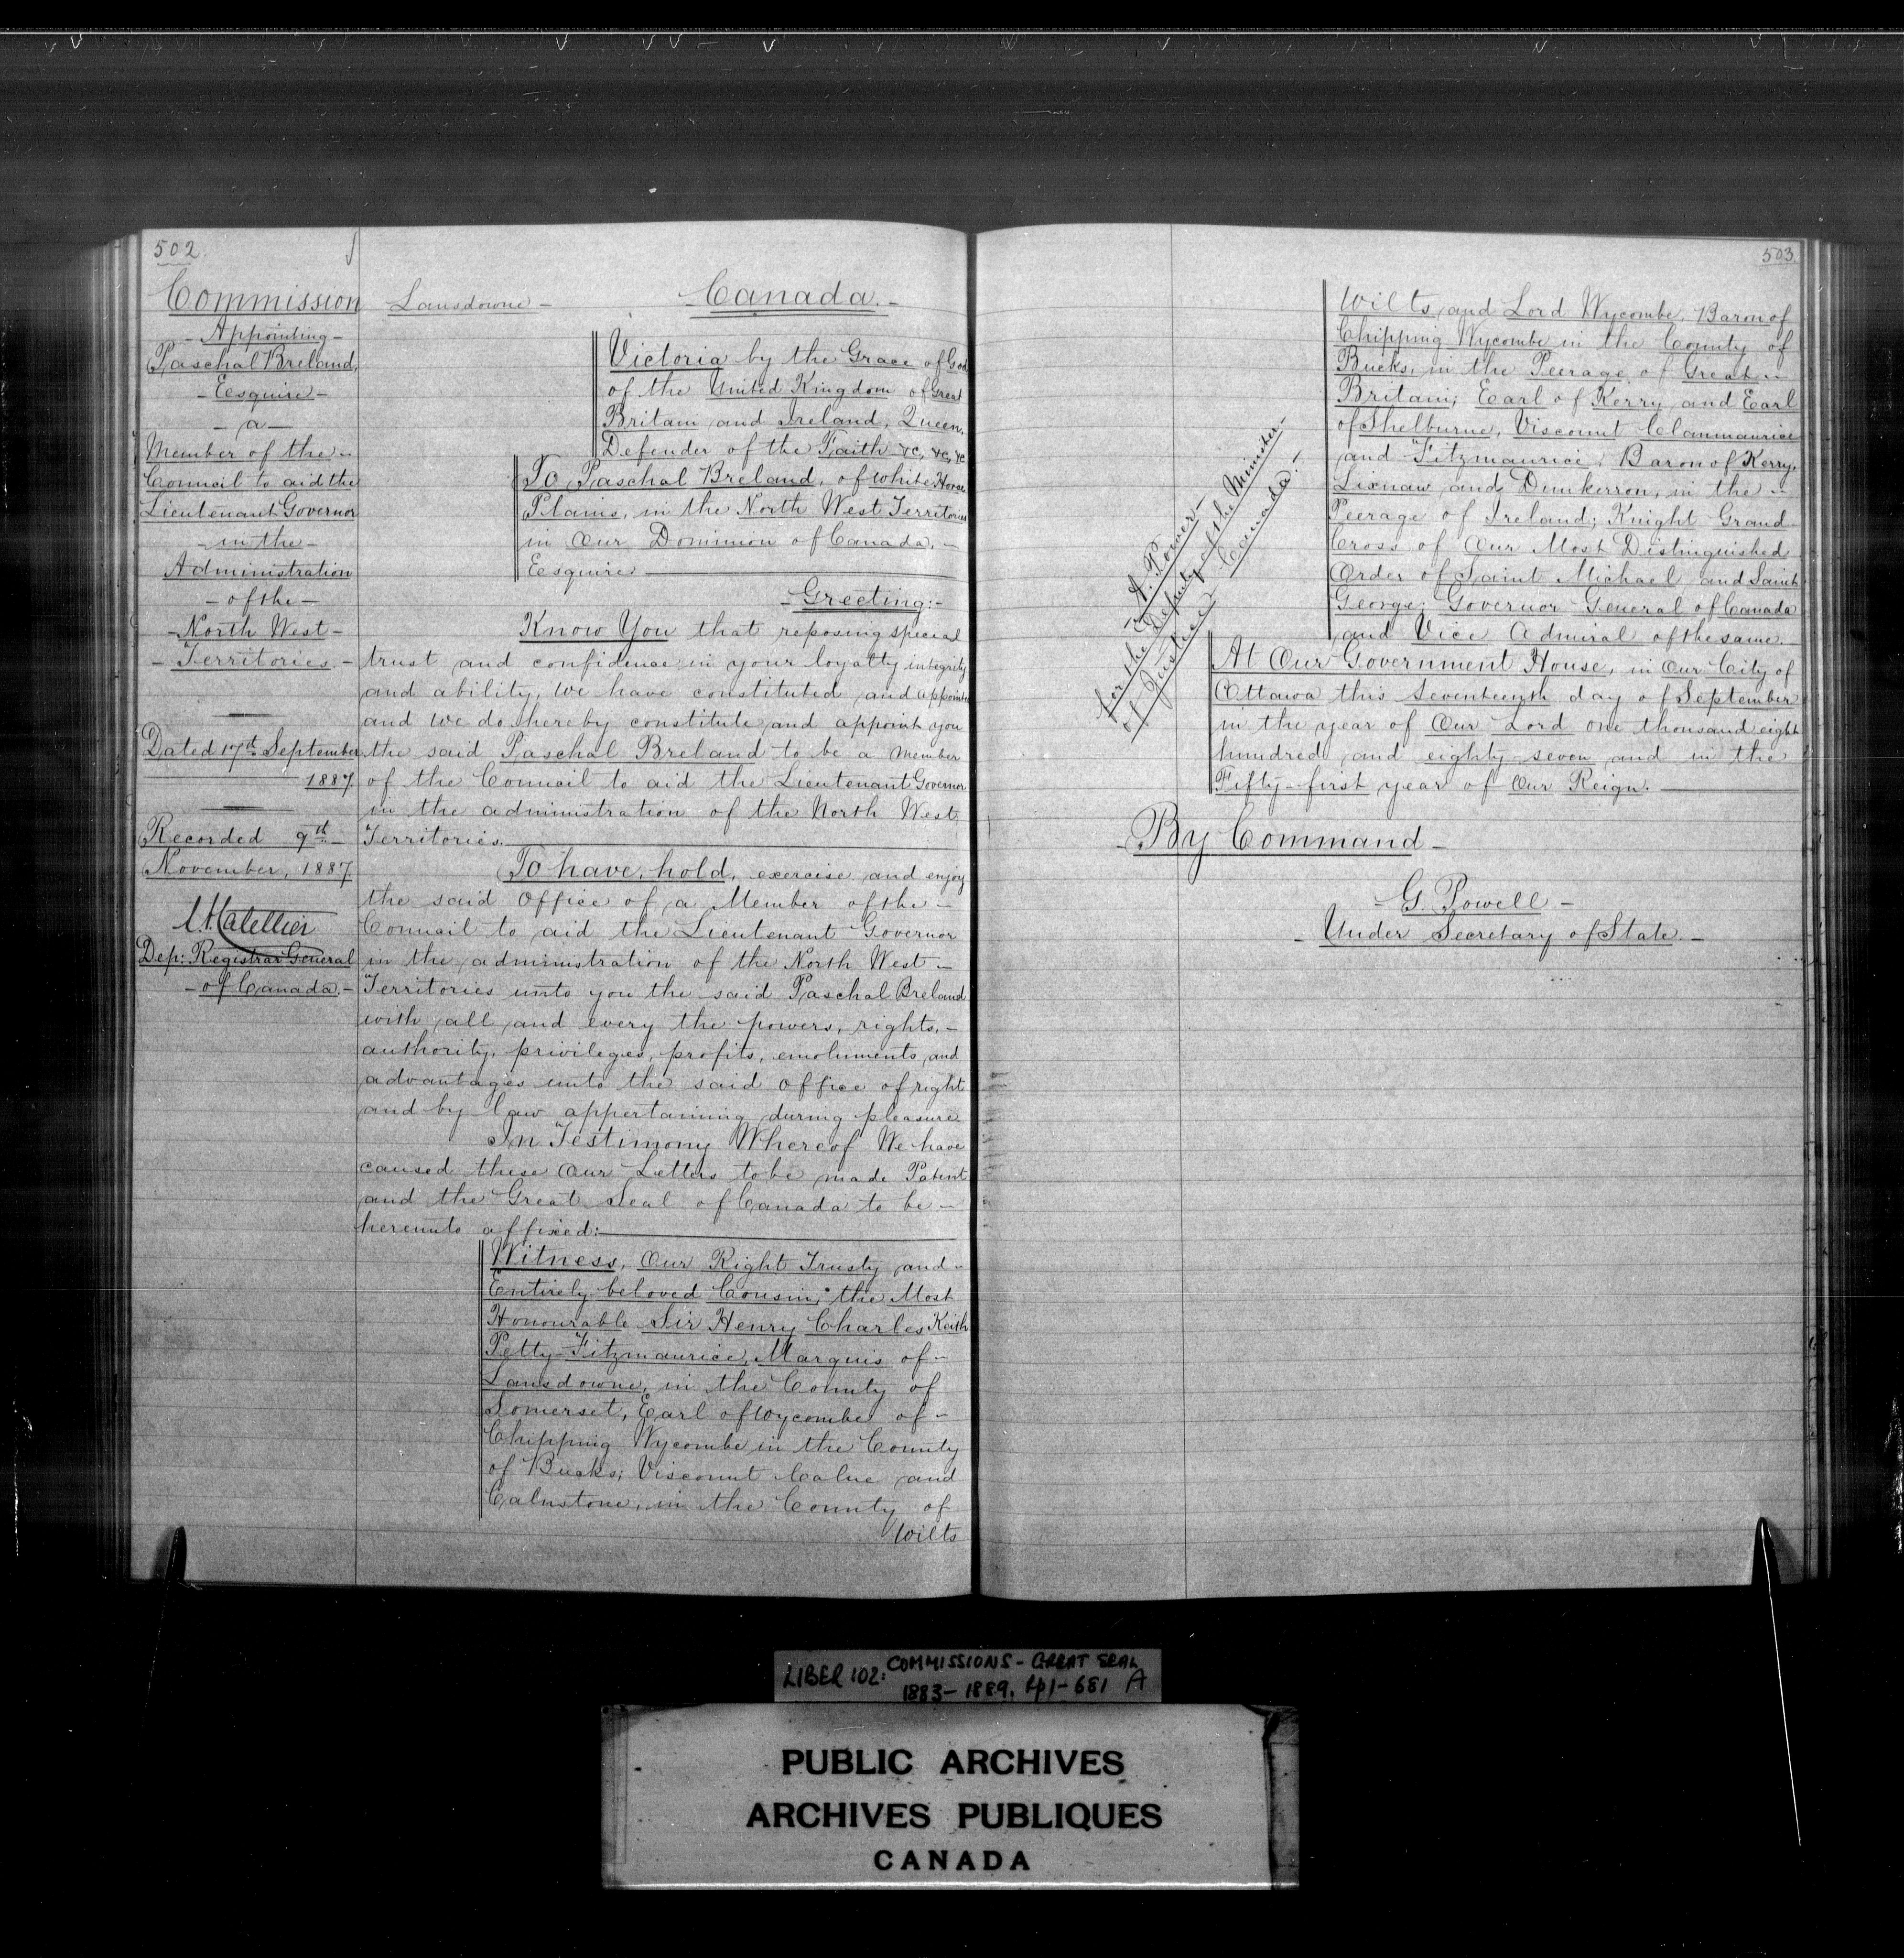 502.
Commission
- Appointing -
Paschal Breland,
- Esquire -
- a -
Member of the -
Council to aid the
Lieutenant Governor
- in the -
Administration
- of the -
- North West -
- Territories. -
Dated 17th September
1887.
Recorded 9th -
November, 1887.
Dep: Registrar General
- of Canada. -
Lansdowne -
- Canada. -
Victoria by the Grace of God
of the United Kingdom of Great
Britain and Ireland, Queen,
Defender of the Faith &c, &c, &c
To Paschal Breland, of White Horse
Plains, in the North West Territories
in Our Dominion of Canada, -
Esquire
- Greeting: -
Know You that reposing special
trust and confidence in your loyalty integrity
and ability, We have constituted and appointed
and We do hereby constitute and appoint you
the said Paschal Breland to be a Member
of the Council to aid the Lieutenant Governor
in the administration of the North West
Territories.
To have, hold, exercise and enjoy
the said Office of a Member of the -
Council to aid the Lieutenant Governor
in the administration of the North West -
Territories unto you the said Paschal Breland
with all and every the powers, rights, -
authority, privileges, profits, emoluments and
advantages unto the said Office of right
and by law appertaining during pleasure
In Testimony Whereof We have
caused these Our Letters to be made Patent
and the Great Seal of Canada to be -
hereunto affixed:
Witness, Our Right Trusty and -
Entirely beloved Cousin, the Most
Honourable Sir Henry Charles Keith
Petty-Fitzmaurice, Marquis of -
Lansdowne, in the County of
Somerset, Earl of Wycombe of -
Chipping Wycombe in the County
of Bucks; Viscount Calne and
Calnstone, in the County of
Wilts
503.
Wilts, and Lord Wycombe, Baron of
Chipping Wycombe in the County of
Bucks, in the Peerage of Great -
Britain; Earl of Kerry and Earl
of Shelburne, Viscount Clanmaurice
and Fitzmaurice, Baron of Kerry,
Lixnaw and Dunkerron, in the -
Peerage of Ireland; Knight Grand
Cross of Our Most Distinguished
Order of Saint Michael and Saint
George; Governor General of Canada
and Vice Admiral of the same. -
- A. Power -
for the Deputy of the Minister -
of Justice, Canada!
At Our Government House, in Our City of
Ottawa this Seventeenth day of September
in the year of Our Lord one thousand eight
hundred and eighty-seven and in the
Fifty-first year of Our Reign.
- By Command -
- G. Powell -
- Under Secretary of State. -
LIBER 102: COMMISSIONS - GREAT SEAL
1883-1889, pp1-681 A
PUBLIC ARCHIVES
ARCHIVES PUBLIQUES
CANADA